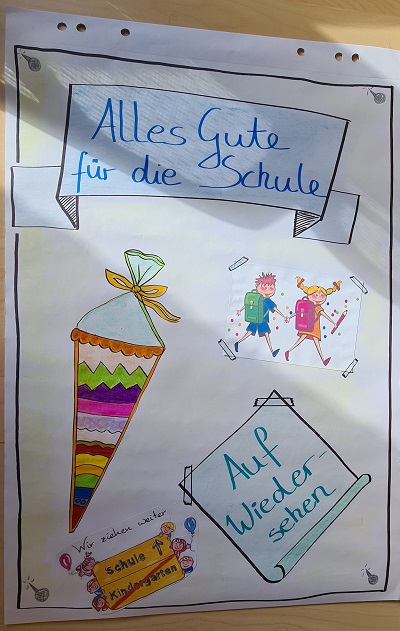 Alles Gute
für die Schule
Auf
Wieder-
sehen
Wir ziehen weiter
Schule
Kindergarten